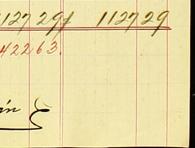 112729 112729
42263.
án